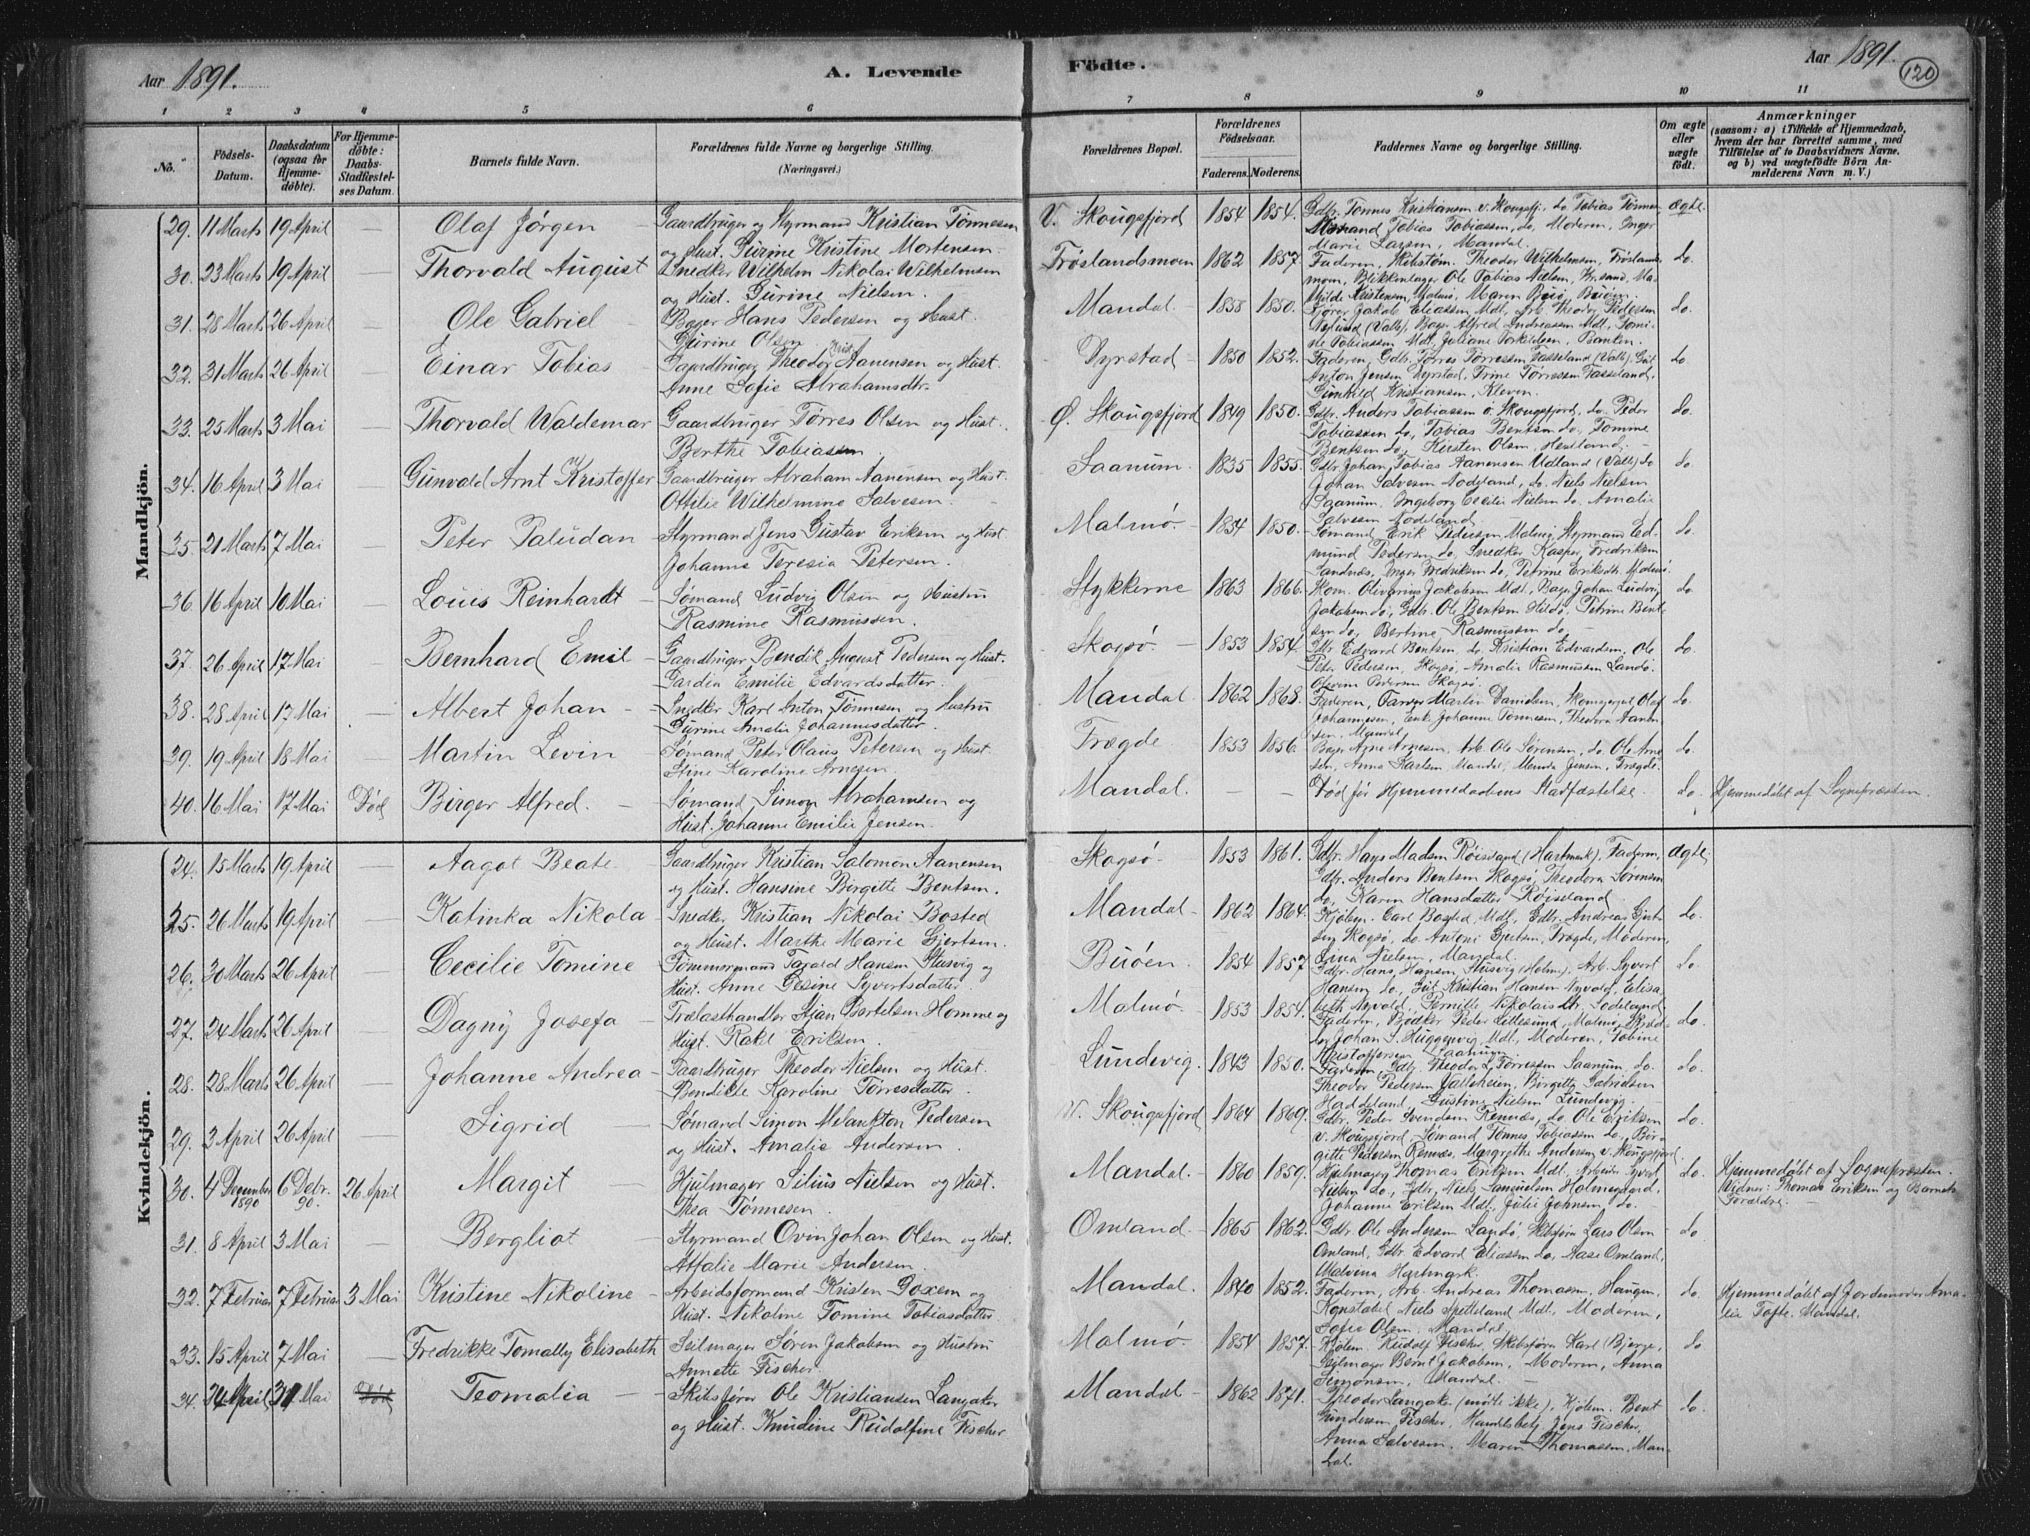 Aar 1891.
A. Levende
1 2 3 4 5 6
No.
Fødsels-Datum.
Daabsdatum (ogsaa for Hjemmedøbte).
For Hjemmedøbte: Daabs-Stadfæstelses Datum.
Barnets fulde Navn.
Forældrenes fulde Navne og borgerlige Stilling.
(Næringsvei.)
Mandkjön.
29. 11 Marts 19 April — Olaf Jörgen — Gaardbruger og Styrmand Kristian Tønnesen
og Hust. Gurine Kristine Mortensen
30. 23 Marts 19 April — Thorvald August Snedker Wilhelm Nikolai Wilhelmsen
og Hust. Gurine Nielsen.
31. 28 Marts 26 April — Ole Gabriel — Bager Hans Pedersen og Hust.
Gurine Olsen
32. 31 Marts 26 April — Einar Tobias — Gaardbruger Theodor Krist. Aanensen og Hust.
Anne Sofie Abrahamsdtr.
33. 25 Marts 3 Mai — Thorvald Waldemar Gaardbruger Tørres Olsen og Hust.
Berthe Tobiassen
34. 16 April 3 Mai — Gunvald Arnt Kristoffer Gaardbruger Abraham Aanensen og Hust.
Ottilie Wilhelmine Salvesen
35. 21 Marts 7 Mai — Peter Paludan — Styrmand Jens Gustav Eriksen og Hust.
Johanne Teresia Petersen.
36. 16 April 10 Mai — Louis Reinhardt — Sømand Ludvig Olsen og Hustru
Rasmine Rasmussen.
37. 26 April 17 Mai Bernhard Emil — Gaardbruger Bendik August Pedersen og Hust.
Gardea Emilie Edvardsdatter.
38. 28 April 17 Mai Albert Johan — Snedker Karl Anton Tønnesen og Hustru
Gurine Amalie Johannesdatter.
39. 19 April 18 Mai — Martin Levin Sømand Peter Olaus Petersen og Hust.
Stine Karoline Arnesen.
40. 16 Mai 17 Mai Død Birger Alfred. — Sømand Simon Abrahamsen og
Hust. Johanne Emilie Jensen.
Kvindekjön.
24. 15 Marts 19 April — Aagot Beate Gaardbruger Kristian Salomon Aanensen
og Hust. Hansine Birgitte Bentsen.
25. 26 Marts 19 April — Katinka Nikola Snedker Kristian Nikolai Bosted
og Hust. Marthe Marie Gjertsen.
26. 30 Marts 26 April — Cecilie Tomine Tømmermand Tarald Hansen Stusvig og
Hust. Anne Gesine Syvertsdatter.
27. 24 Marts 26 April — Dagny Josefa — Trælasthandler Stian Bertelsen Homme og
Hust. Rakel Eriksen.
28. 28 Marts 26 April — Johanne Andrea — Gaardbruger Theodor Nielsen og Hust.
Bendikte Karoline Tørresdatter
29. 3 April 26 April — Sigrid — Sømand Simon Melankton Pedersen
og Hust. Amalie Andersen.
30. 4 December 1890 6 Debr. 90. 26 April Margit — Hjulmager Silius Nielsen og Hust.
Thea Tønnesen.
31. 8 April 3 Mai Bergliot — Styrmand Ovin Johan Olsen og Hust.
Attalie Marie Andersen.
32. 7 Februar 7 Februar 3 Mai Kristine Nikoline — Arbeidsformand Kristen Goxem og
Hust. Nikoline Tomine Tobiasdatter.
33. 15 April 7 Mai — Fredrikke Tomally Elisabeth Seilmager Søren Jakobsen og Hustru
Annette Fischer.
34. 24 April 31 Mai Død Teomalia — Skibsfører Ole Kristiansen Langaker
og Hust. Knudine Rudolfine Fischer
Födte.
Aar 1891.
120
7 8 9 10 11
Forældrenes Bopæl.
Forældrenes Födselsaar.
Faderens. Moderens.
Faddernes Navne og borgerlige Stilling.
Om ægte eller uægte födt.
Anmærkninger
(saasom: a) i Tilfælde af Hjemmedaab, hvem der har forrettet samme, med Tilföielse af to Daabsvidners Navne, og b) ved uægtefödte Börn Anmelderens Navn m. V.)
V. Skougsfjord 1854 1854. Gdbr. Tønnes Kristiansen v. Skougsfj. do Tobias Tønnesen, ægte.
Sømand Tobias Tobiassen, do, Moderen, Inger
Marie Larsen, Mandal.
Frøslandsmoen 1862 1857. Faderen, Skibstøm. Theodor Wilhelmsen, Frøslands- do.
moen, Blikkenslager Ole Tobias Nielsen, Kr.sand, Ma-
thilde Kristensen, Malmø, Maren Buø, Buøen.
Mandal — 1855 1850. Fører Jakob Eliassen Mdl, Arb. Theodor Pedersen do.
(Valb), Bager Alfred Andreassen Mdl, Tomi-
ne Tobiassen Mdl. Juliane Torkildsen, Banken.
Dyrstad — 1850 1852. Faderen, Gdb. Tørres Tørressen Tasseland (Valb), Gut do
Anton Jensen Dyrstad, Trine Tørressen Tasseland,
Gunhild Kristiansen, Kleven.
Ø. Skougsfjord 1849 1850. Gdbr. Anders Tobiassen ø. Skougsfjord, do Peder do.
Tobiassen do, Tobias Bentsen do, Tomme
Bentsen do, Kirsten Olsen, Hesland.
Saanum. 1835 1855. Gdbr. Johan Tobias Aanensen Udland (Valb) do do.
Johan Salvesen Nodeland, do. Niels Nielsen
Saanum, Ingeborg Cecilie Nielsen do, Amalie
Salvesen Nodeland
Malmø. — 1854 1850. Sømand Erik Pedersen Malmø, Styrmand Ed- do.
mund Pedersen do, Snedker Kasper Fredriksen
Sandnæs, Inger Fredriksen do, Petrine Eriksdtr. Malmø.
Stykkerne 1863 1866. Skom. Olevarius Jakobsen Mdl., Bager Johan Ludvig do.
Jakobsen do, Gdb. Ole Bentsen Hildø, Petrine Bent-
sen do, Bertine Rasmussen do —
Skogsø. — 1853 1854. Gdbr. Edvard Bentsen, do. Kristian Edvardsen, Ole do.
Peter Pedersen, Skogsø, Amalie Rasmussen Landø.
Olevine Pedersen Skogsø.
Mandal 1862 1868. Faderen, Farver Martin Danielsen, Skomagergut Olaf do.
Johannesen, Enke Johanne Tønnesen, Theodora Aanen-
sen, Mandal.
Frægde 1853 1856. Bager Arne Arnesen, Arb. Ole Sørensen, do. Ole Arne- do.
sen, Anna Karlsen Mandal, Menda Jensen, Frægde.
Mandal. — — Død før Hjemmedaabens Stadfæstelse. do. Hjemmedøbt af Sognepræsten.
Skogsø. 1853 1861. Gdbr. Hans Madsen Røiseland (Hartmark), Faderen, Ægte
Gdbr. Anders Bentsen Skogsø, Theodora Sørensen
do, Karen Hansdatter Røiseland.
Mandal — 1862 1864. Kjøbm. Carl Bosted Mdl, Gdbr. Andreas Gjert- do.
sen Skogsø, do. Antoni Gjertsen, Frægde, Moderen,
Lina Nielsen, Mandal.
Buøen. — 1854 1857 Gdbr. Hans Hansen, Stusvig (Holme), Arb. Syvert do.
Hansen do, Gut Kristian Hansen Nyvold, Elisa-
beth Nyvold, Pernille Nikolaisdtr.
Malmø. — 1853 1854. Faderen, Bødker Peder Lillesund, Malmø, do.
Johan S. Huggenvig Mdl., Moderen, Tobine
Kristoffersen, Saanum.
Lundevig. 1843 1850. Faderen, Gdb. Theodor L. Tørressen Saanum, do. do.
Theodor Pedersen Valleheien, Birgitte Gabrielsen
Haddeland, Gustine Nielsen Lundevig.
V. Skougsfjord 1864 1869. Gdbr. Peder Svendsen Rennæs, do Ole Eriksen do.
v. Skougsfjord, Sømand Tønnes Tobiassen do, Bir-
gitte Pedersen Rennæs, Margrethe Andersen v. Skougsfjord.
Mandal — 1860 1859. Hjulmager Thomas Eriksen Mdl, Arbeider Syvert do. Hjemmedøbt af Sognepræsten.
Nielsen do, Gdbr. Niels Samuelsen Holmegaard, Vidner: Thomas Eriksen og Barnets
Johanne Eriksen Mdl, Julie Johnsen, do. — Forældre.
Omland — 1865 1862. Gdbr. Ole Andersen Landø, Skibsfører Lars Olsen do
Omland, Gdbr. Edvard Eliassen do, Aase Omland,
Malvina Hartmark.
Mandal. 1840 1852. Faderen, Arb. Andreas Thomassen, Haugen, do. Hjemmedøbt af Jordemoder Ama-
Konstabel Niels Spetteland Mdl, Moderen, lie Tofte. Mandal.
Sofie Olsen, Mandal.
Malmø. — 1854 1857. Kjøbm. Rudolf Fischer, Skibsfører Karl Bjerge, do.
Seilmager Bernt Jakobsen, Moderen, Anna
Simonsen, Mandal. —
Mandal — 1862 1871. Theodor Langaker (mødte ikke), Kjøbm. Bent do.
Gundersen Fischer, Handelsbetj. Jens Fischer,
Anna Salvesen, Maren Thomassen, Man-
dal.